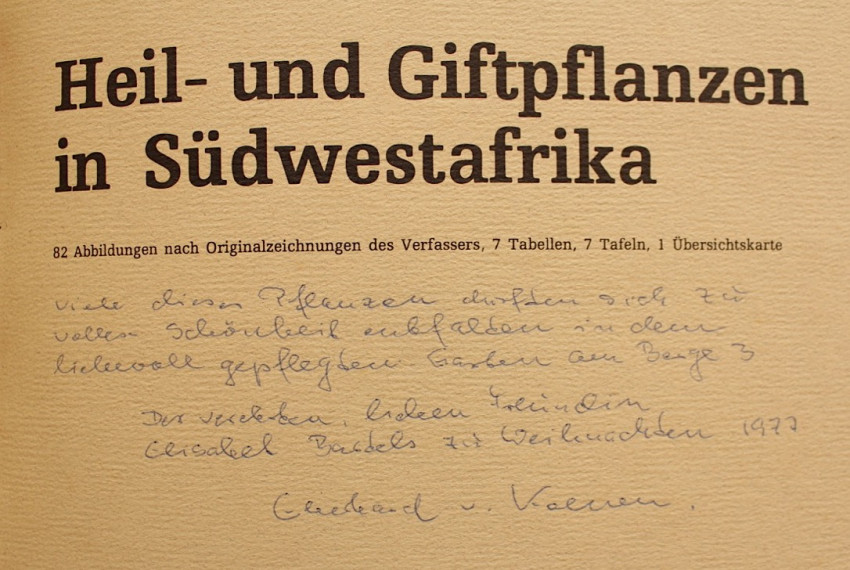 Heil- und Giftpflanzen
in Südwestafrika
82 Abbildungen nach Originalzeichnungen des Verfassers, 7 Tabellen, 7 Tafeln, 1 Übersichtskarte
Viele dieser Pflanzen durften sich zu
voller Schönheit entfalten in dem
liebevoll gepflegten Garten am Berge 3
Der verehrten, lieben Freundin
Elisabet Bartels zu Weihnachten 1977
Eberhard v. Koenen.